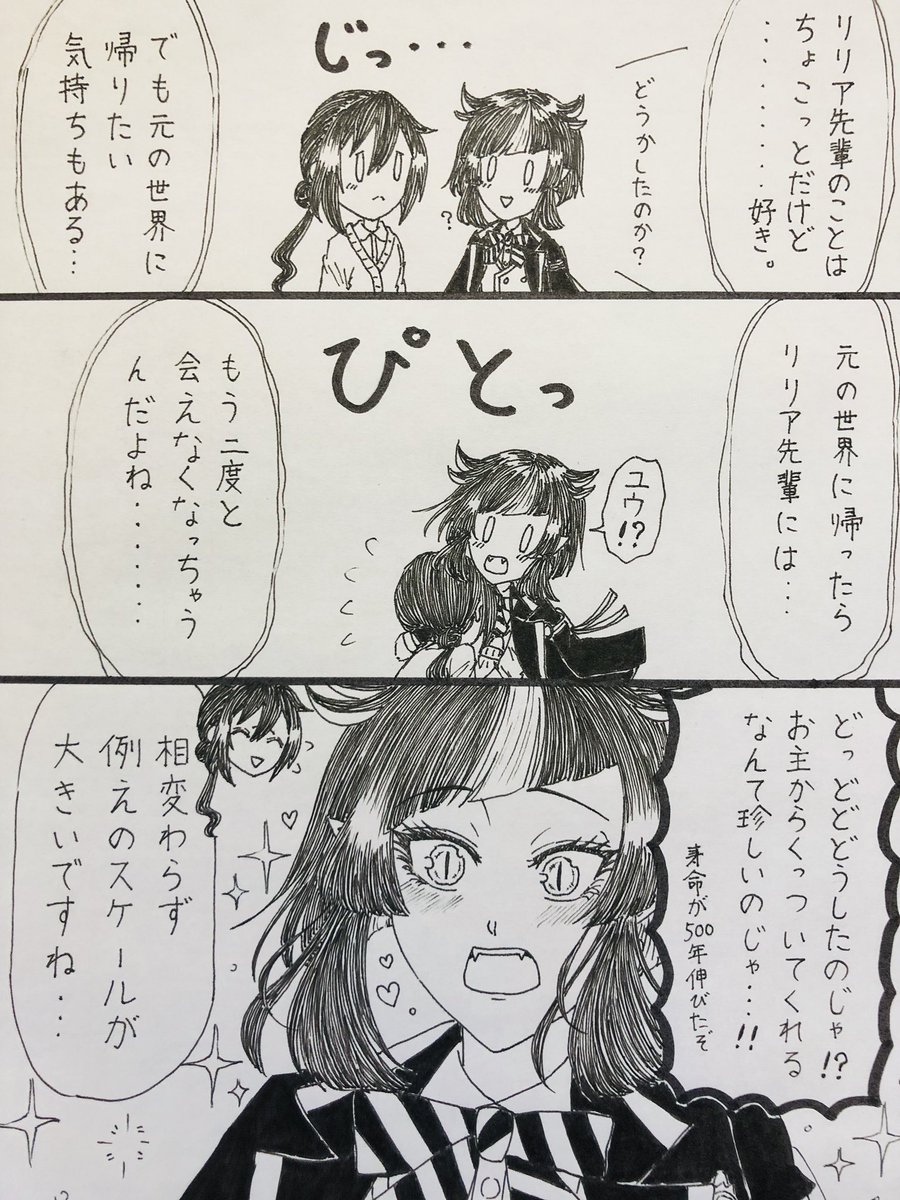 リリア先輩のことは
ちょこっとだけど
・・・・・・・・好き。
どうかしたのか?
じっ・・・
?
でも元の世界に
帰りたい
気持ちもある・・・
元の世界に帰ったら
リリア先輩には・・・
ユウ
!?
ぴとっ
もう二度と
会えなくなっちゃう
んだよね・・・・・・
どっどどどうしたのじゃ!?
お主からくっついてくれる
なんて珍しいのじゃ・・・!!
寿命が500年伸びたぞ
相変わらず
例えのスケールが
大きいですね・・・